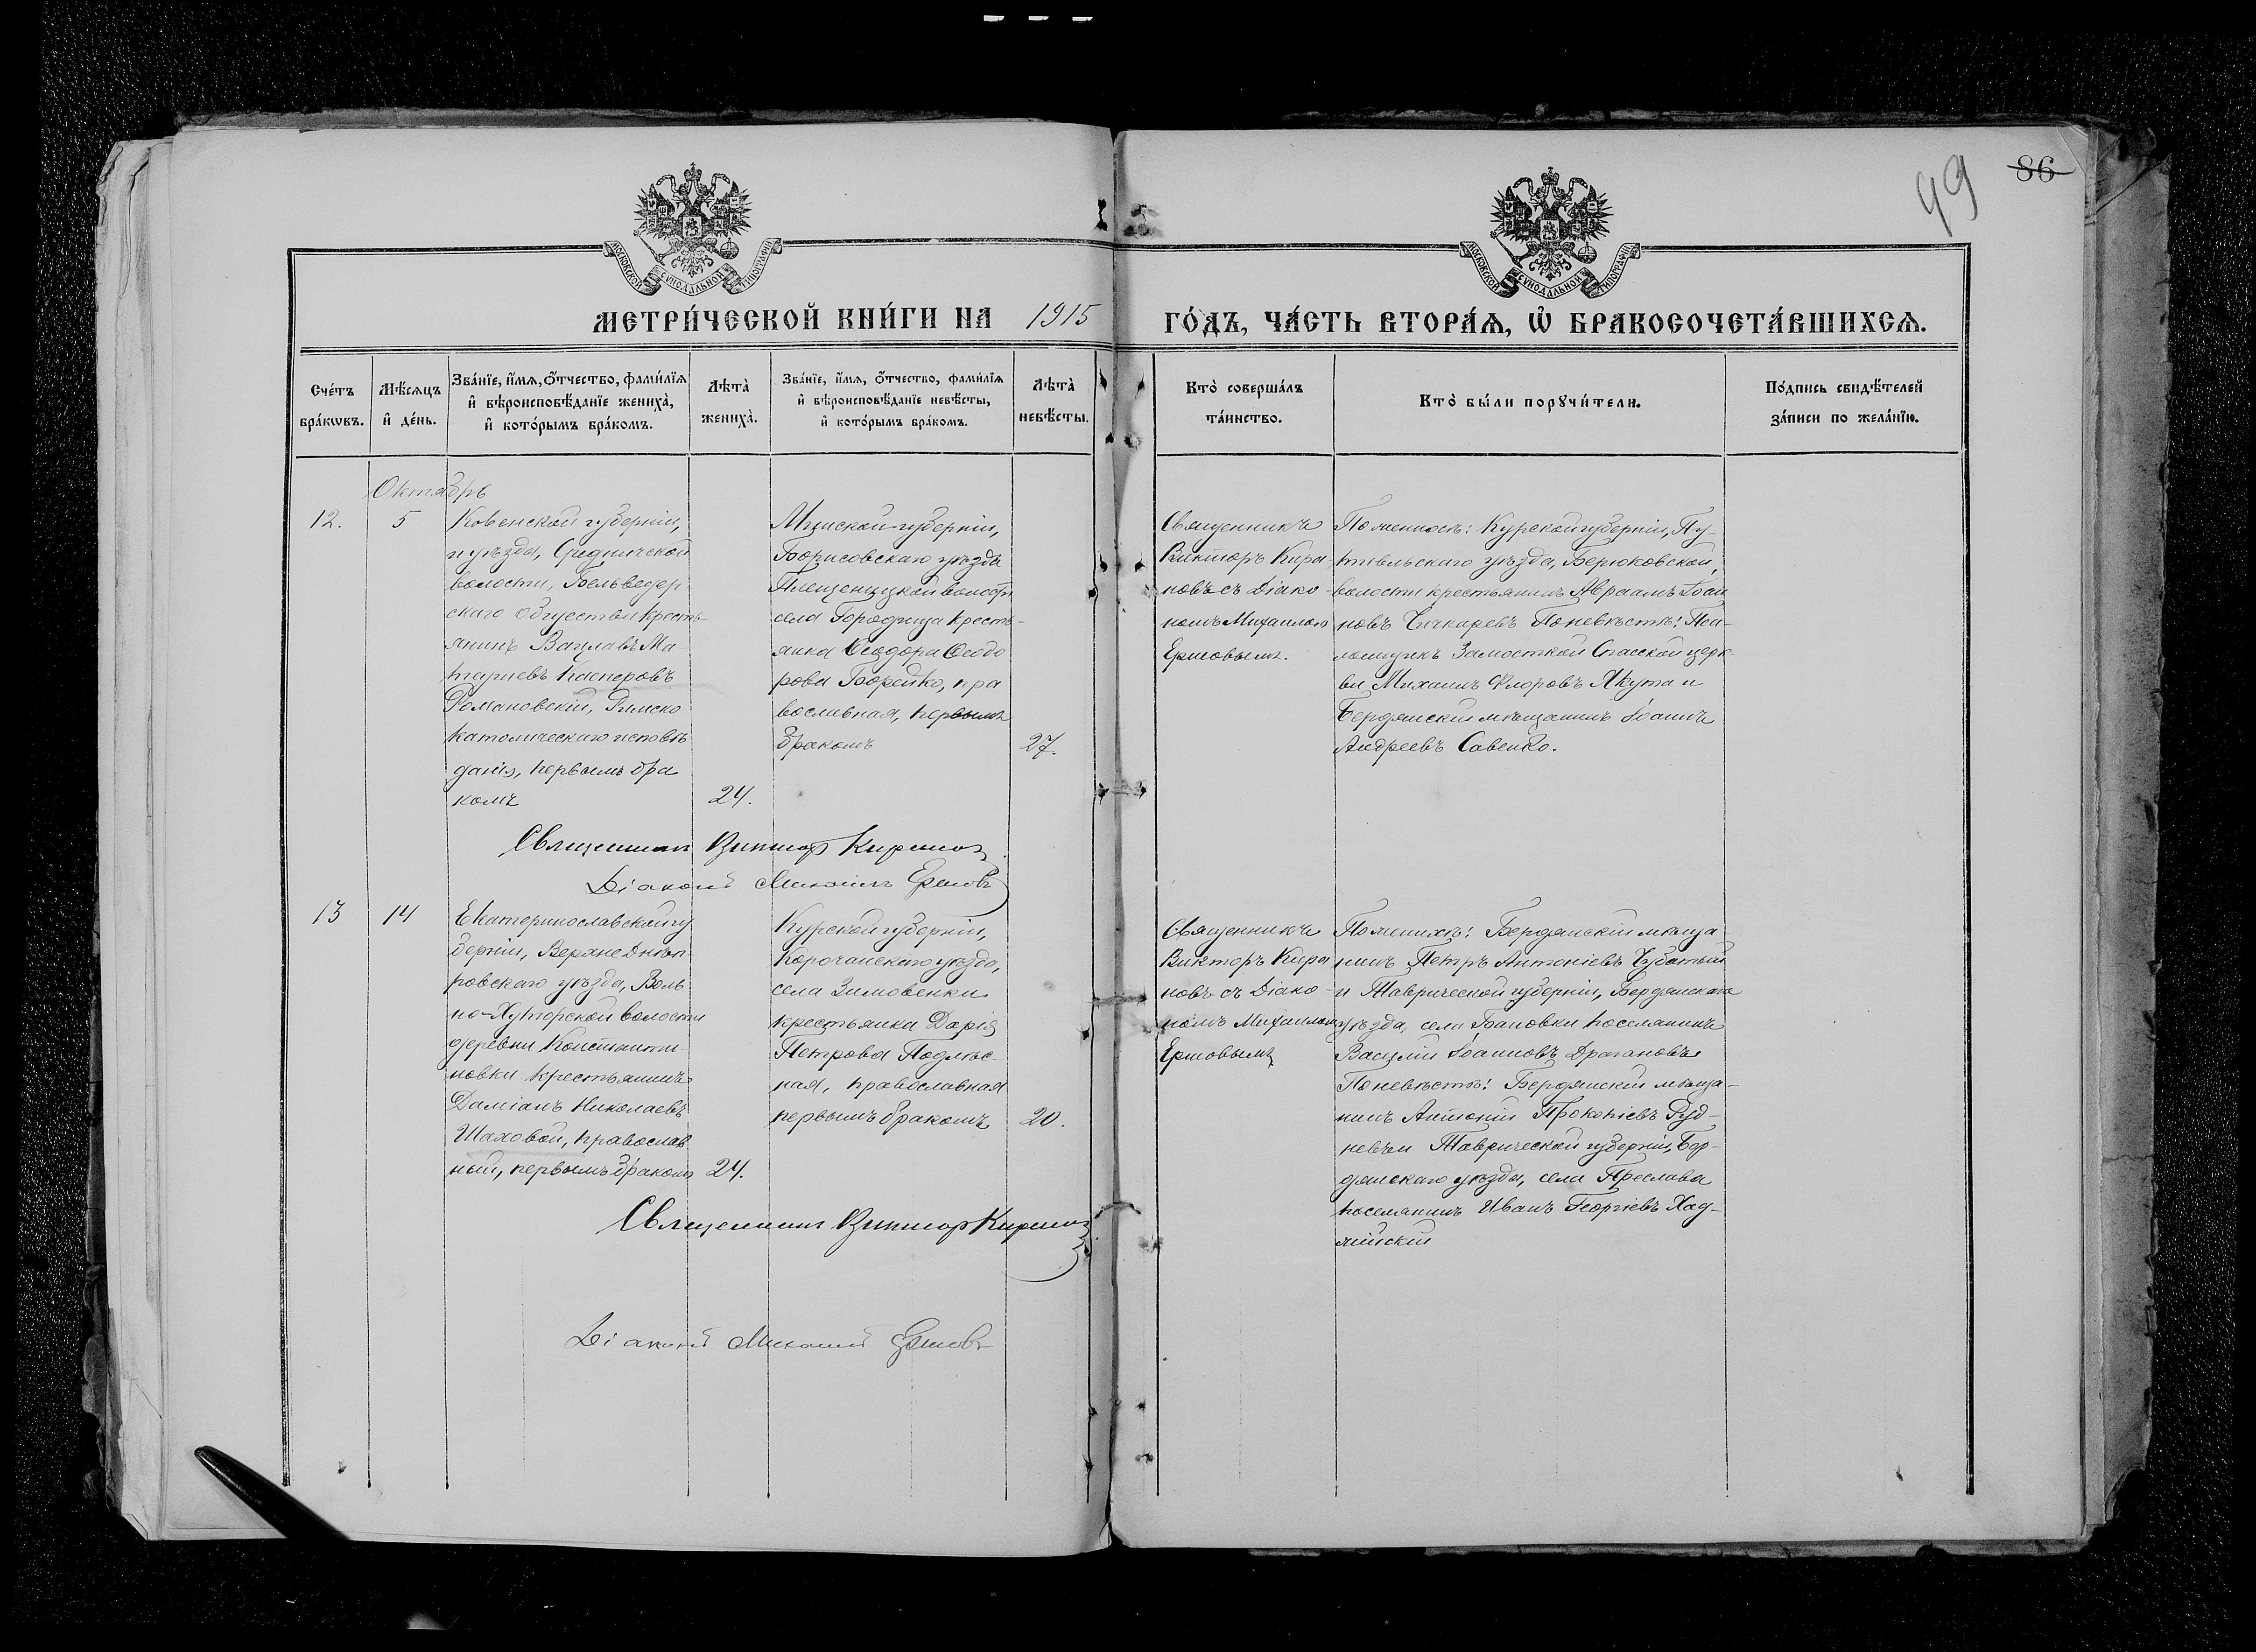 99
86
МОСКОВСКОЙ СУНОДАЛЬНОЙ ТИПОГРАФІИ
МОСКОВСКОЙ СУНОДАЛЬНОЙ ТИПОГРАФІИ
МЕТРИ́ЧЕСКОЙ КНИ́ГИ НА 1915
ГО́ДЪ, ЧА́СТЬ ВТОРА́Ѧ, Ѡ БРАКОСОЧЕТА́ВШИХСѦ.
Сче́тъ
бра́кѡвъ.
Мѣ́сѧцъ
и де́нь.
Зва́нїе, и́мѧ, ѻ́тчество, фами́лїѧ
и вѣроисповѣ́данїе жениха̀,
и кото́рымъ бра́комъ.
Лѣта̀
жениха̀.
Зва́нїе, и́мѧ, ѻ́тчество, фами́лїѧ
и вѣроисповѣ́данїе невѣ́сты,
и кото́рымъ бра́комъ.
Лѣта̀
невѣ́сты.
Кто̀ соверша́лъ
та́инство.
Кто̀ бы́ли порꙋчи́тели.
По́дпись свидѣ́телей
за́писи по жела́нїю.
Октябрь
12.
5
Ковенской губерніи,
и уѣзда, Средникской
волости, Бельведер
скаго общества кресть-
янинъ Вацлавъ Ма-
Касперовъ
Романовскій, Римско
католическаго исповѣ
данія, первымъ бра
комъ
24.
Минской губерніи,
Борисовскаго уѣзда
Плещеницкой волости
села Городища кресть-
янка Ѳеодора Ѳеодо
рова Борейко, пра
вославная, первымъ
бракомъ
27.
Священникъ
Викторъ Кира
новъ съ Діако-
номъ Михаиломъ
Ершовымъ.
По женихѣ: Курской губерніи, Пу-
тивльскаго уѣзда, Берюковской,
волости крестьянинъ Авраамъ Іоан
новъ Чичкаревъ По невѣстѣ: Пса-
ломщикъ Замостской Спасской церк
ви Михаилъ Флоровъ Якута и
Бердянскій мѣщанинъ Іоаннъ
Андреевъ Савенко.
Священникъ Викторъ Кирановъ
Діаконъ Михаилъ Ершовъ
13
14
Екатеринославской гу
берніи, Верхнеднѣп
ровскаго уѣзда, Воль
но-Хуторской волости
деревни Константи-
новки крестьянинъ
Даміанъ Николаевъ
Шаховой, православ
ный, первымъ бракомъ
24.
Курской губерніи,
Корочанскаго уѣзда,
села Зимовенки
крестьянка Дарія
Петрова Подлѣс-
ная, православная
первымъ бракомъ
20.
Священникъ
Викторъ Кира
новъ съ Діако-
номъ Михаиломъ
Ершовымъ
По женихѣ: Бердянскій мѣща
нинъ Петръ Антоніевъ Чубатый
и Таврической губерніи, Бердянскаго
уѣзда, села Бановки поселянинъ
Василій Іоанновъ Драгановъ
По невѣстѣ: Бердянскій мѣща-
нинъ Антоній Прокопіевъ Руд-
невъ и Таврической губерніи, Бер-
дянскаго уѣзда, села Преслава
поселянинъ Иванъ Георгіевъ Хад-
жійскій
Священникъ Викторъ Кирановъ
Діаконъ Михаилъ Ершовъ